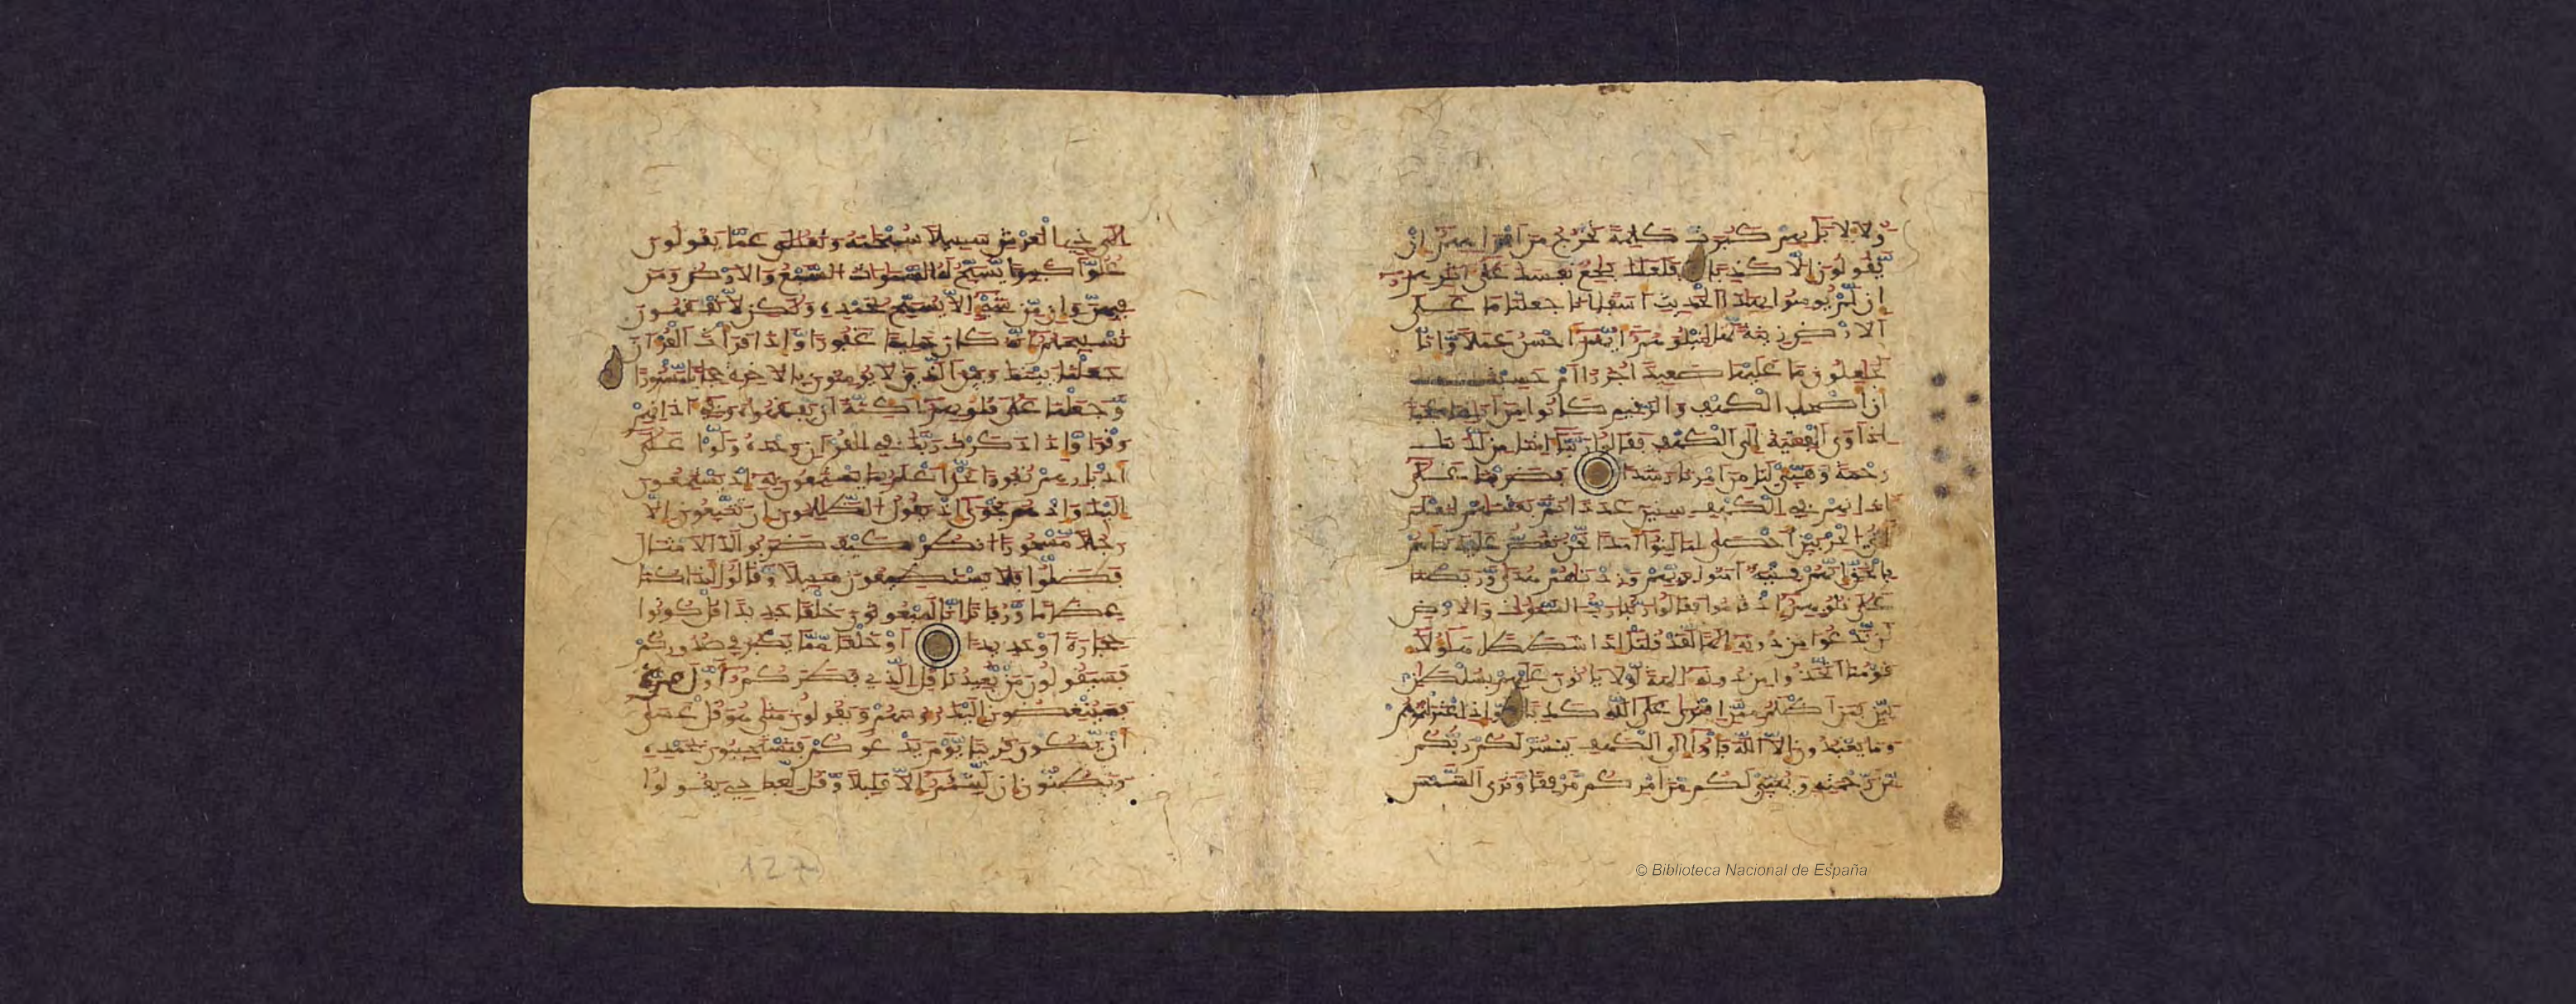 ولا لابايهم كبرت كلمة تخرج من افواههم ان
يقولون الا كذبا فلعلك بخع نفسك على اثرهم
ان لم يومنوا بهذا الحديث اسفا انا جعلنا ما على
الارض زينة لها لنبلوهم ايهم احسن عملا وانا
لجعلون ما عليها صعيدا جرزا ام حسبت
ان اصحب الكهف والرقيم كانوا من ايتنا عجبا
اذ اوى الفتية الى الكهف فقالوا ربنا اتنا من لدنك
رحمة وهيئ لنا من امرنا رشدا فضربنا على
اذانهم في الكهف سنين عددا ثم بعثنهم لنعلم
اي الحزبين احصى لما لبثوا امدا نحن نقص عليك نباهم
بالحق انهم فتية امنوا بربهم وزدناهم هدى وربطنا
على قلوبهم اذ قاموا فقالوا ربنا رب السموات والارض
لن ندعوا من دونه الها لقد قلنا اذا شططا هولاء
قومنا اتخذوا من دونه الهة لولا ياتون عليهم بسلطن
بين فمن اظلم ممن افترى على الله كذبا واذ اعتزلتموهم
وما يعبدون الا الله فاوا الى الكهف ينشر لكم ربكم
من رحمته ويهيئ لكم من امركم مرفقا وترى الشمس
الى ذي العرش سبيلا سبحنه وتعلى عما يقولون
علوا كبيرا يسبح له السموات السبع والارض ومن
فيهن وان من شيء الا يسبح بحمده ولكن لا تفقهون
تسبيحهم انه كان حليما غفورا واذا قرات القران
جعلنا بينك وبين الذين لا يومنون بالاخرة حجابا مستورا
وجعلنا على قلوبهم اكنة ان يفقهوه وفي اذانهم
وقرا واذا ذكرت ربك في القران وحده ولوا على
ادبارهم نفورا نحن اعلم بما يستمعون به اذ يستمعون
اليك واذ هم نجوى اذ يقول الظلمون ان تتبعون الا
رجلا مسحورا انظر كيف ضربوا لك الامثال
فضلوا فلا يستطيعون سبيلا وقالوا اذا كنا
عظاما ورفاتا انا لمبعوثون خلقا جديدا قل كونوا
حجارة او حديدا او خلقا مما يكبر في صدوركم
فسيقولون من يعيدنا قل الذي فطركم اول مرة
فسينغضون اليك روسهم ويقولون متى هو قل عسى
ان يكون قريبا يوم يدعوكم فتستجيبون بحمده
وتظنون ان لبثتم الا قليلا وقل لعبادي يقولوا
127
© Biblioteca Nacional de España